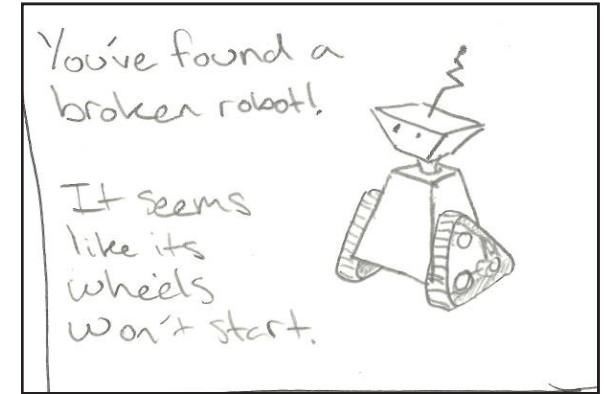 You've found a
broken robot!
It seems
like its
wheels
won't start.